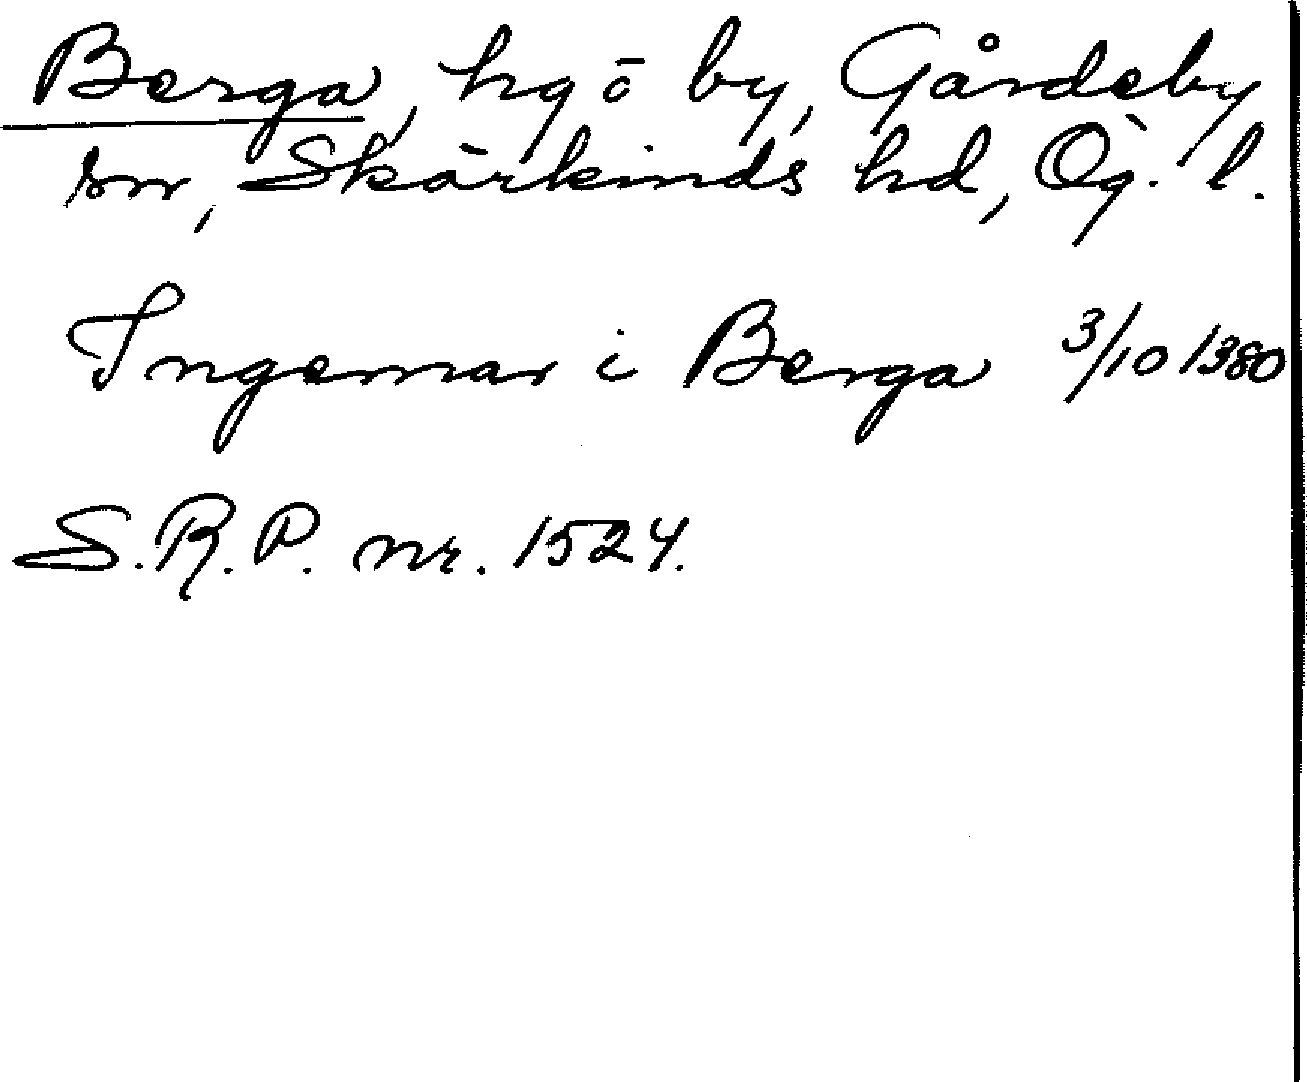 Berga, hg ö by, Gårdeby
sn, Skärkinds hd, Ög. l.
Ingemar i Berga 3/10 1380
S.R.P. nr. 1524.